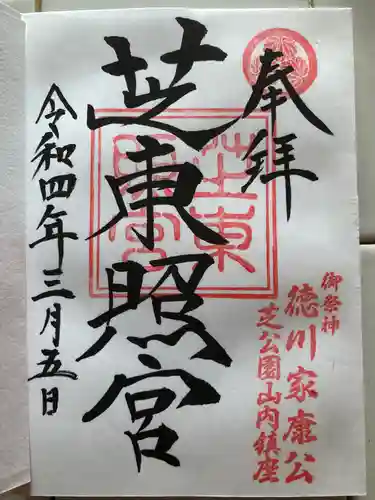 奉拝
御祭神
徳川家康公
芝公園山内鎮座
芝東照宮
令和四年三月五日